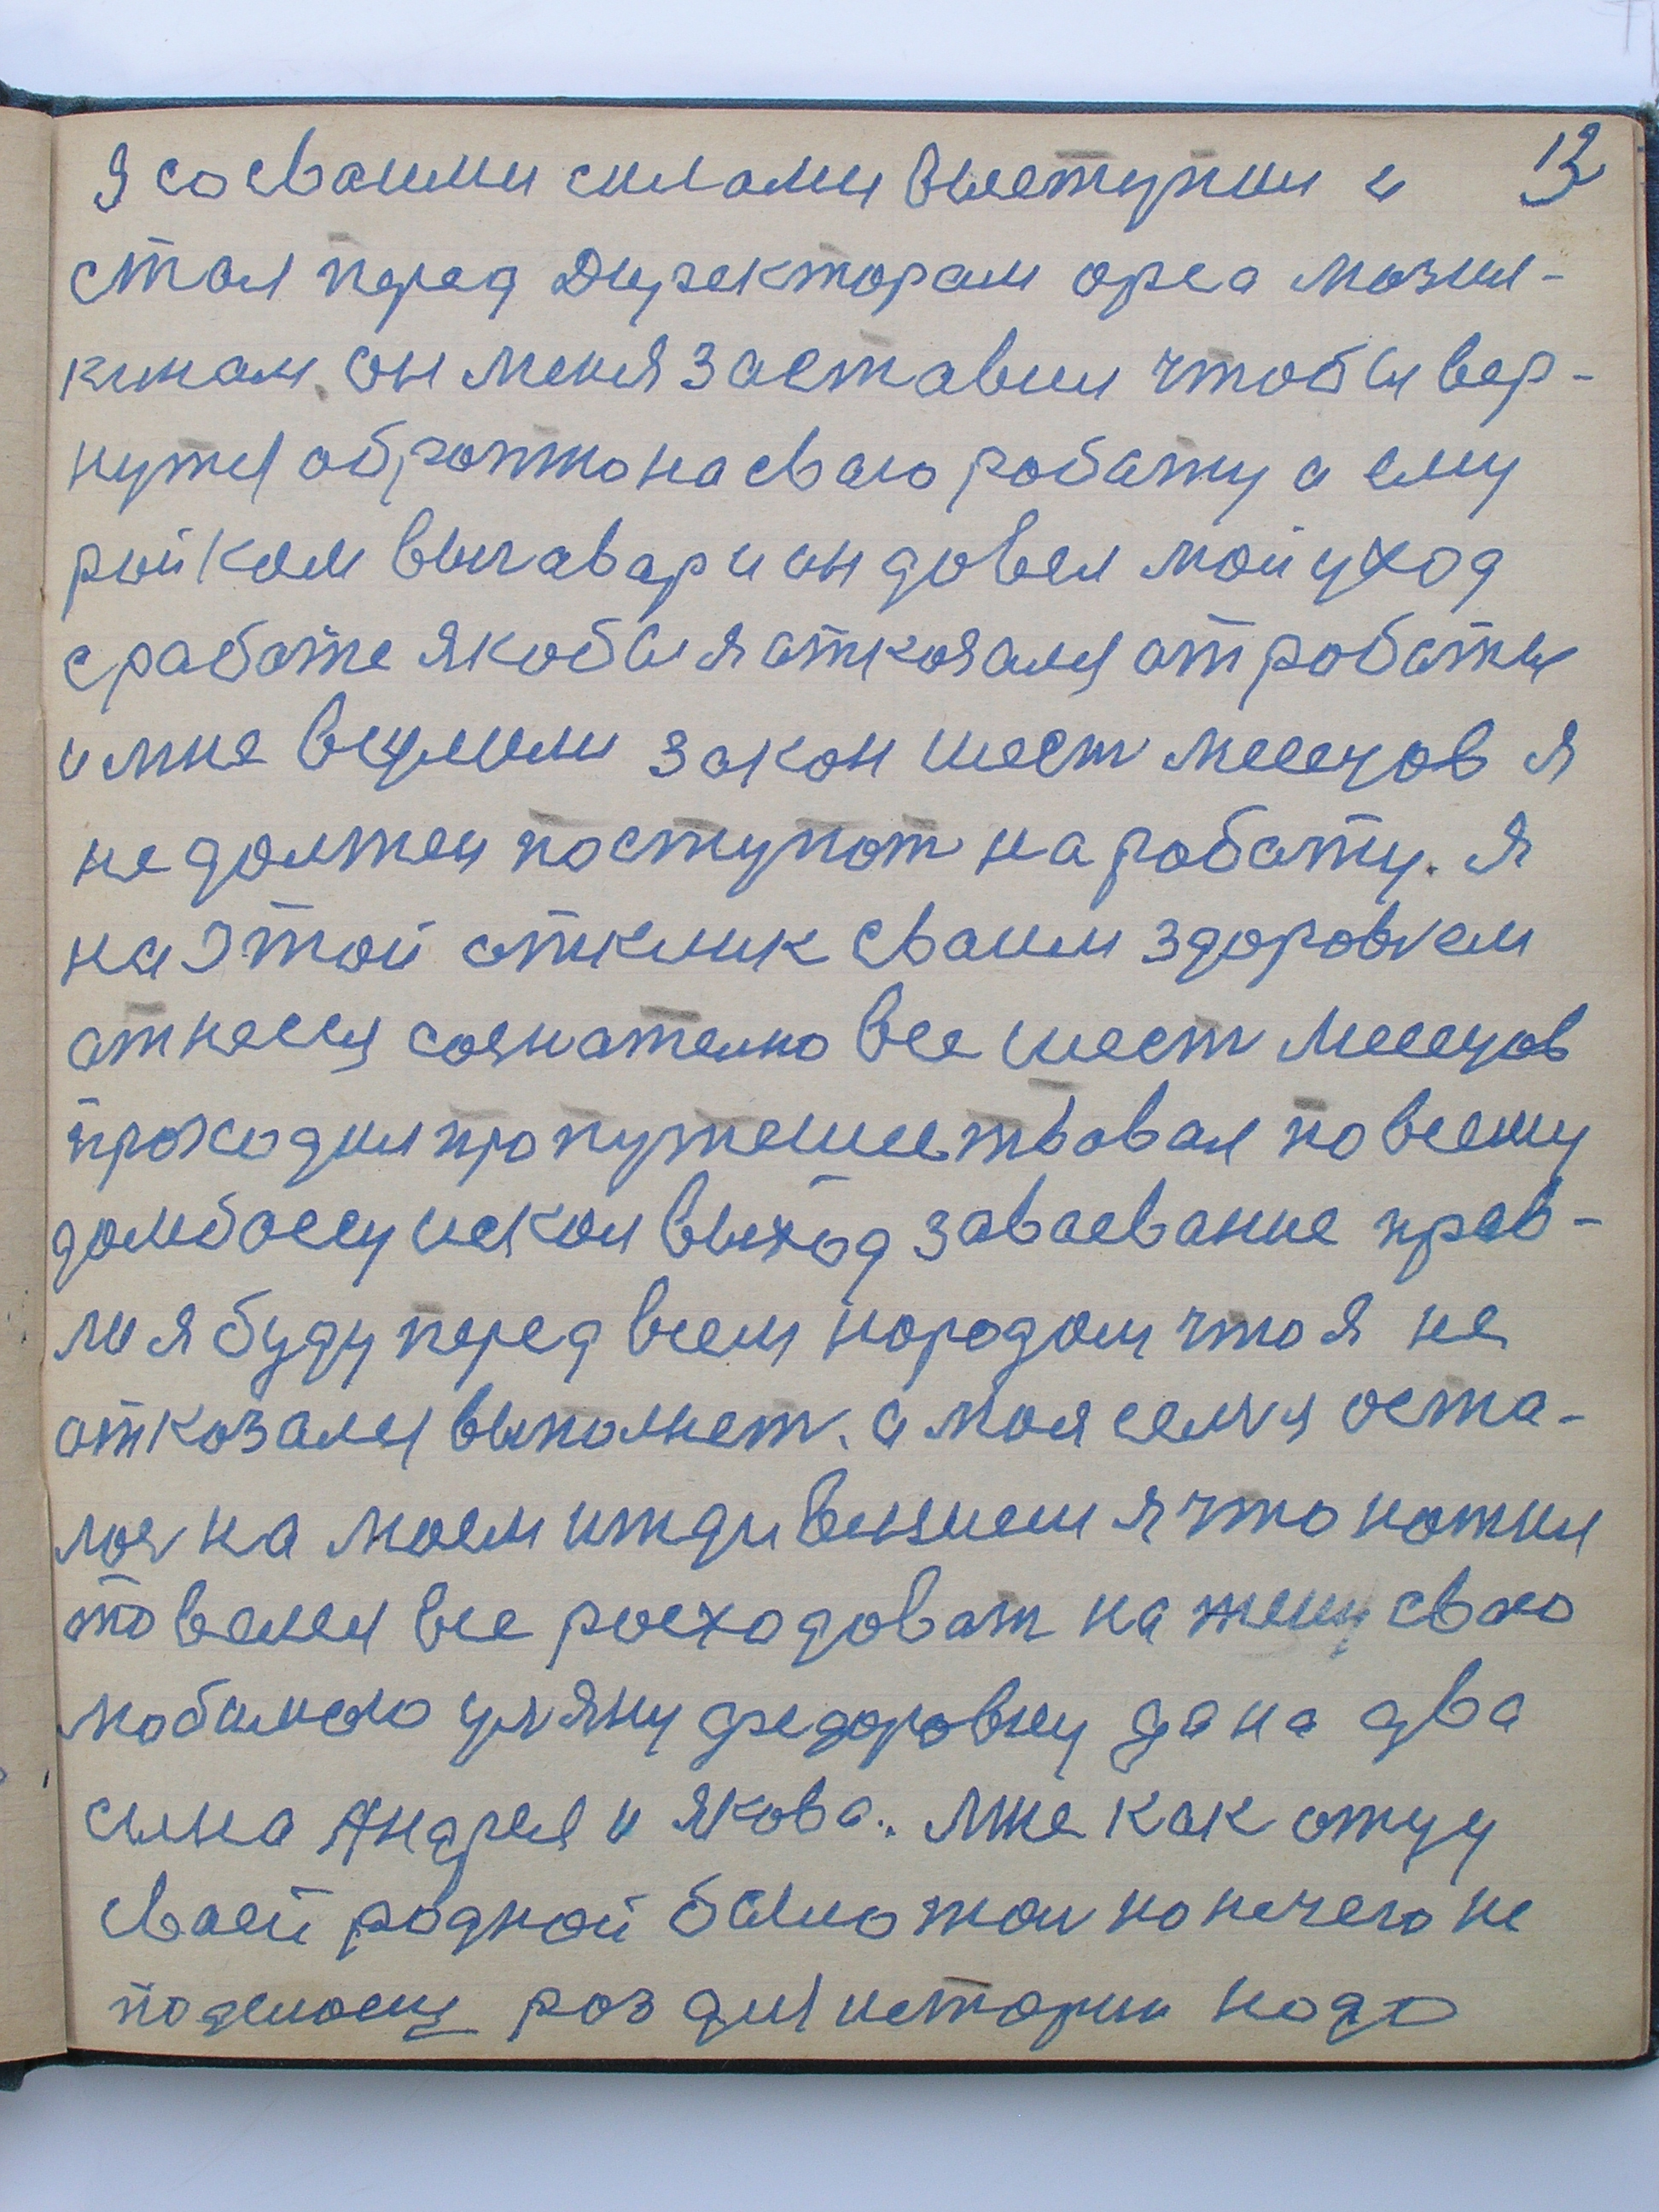 13
Я со сваими силами выступил и
стал перед Директорам орса мозил-
кинам. он меня заставил чтобы вер-
нутся обротто на сваю работу а ему
райком выгавар и он довел мой уход
с работе якобы я атказался от работы
и мне всучили закон шест месецов я
не должен поступат на работу. я
на этой отклик сваим здоровием
атнесся сознателно все шест месецов
проходил пропутешествовал по всему
домбассу искал выход заваевание прав-
ли я буду перед всем народом что я не
атказался выполнет. а моя семия оста-
лос на моем иждивениеи я что нажил
то велел все росходоват на жену сваю
любимою уляну федоровну да на два
сына Андрея и якова. Мне как отцу
сваей родной было жал но нечего не
поделаеш роз для истории надо